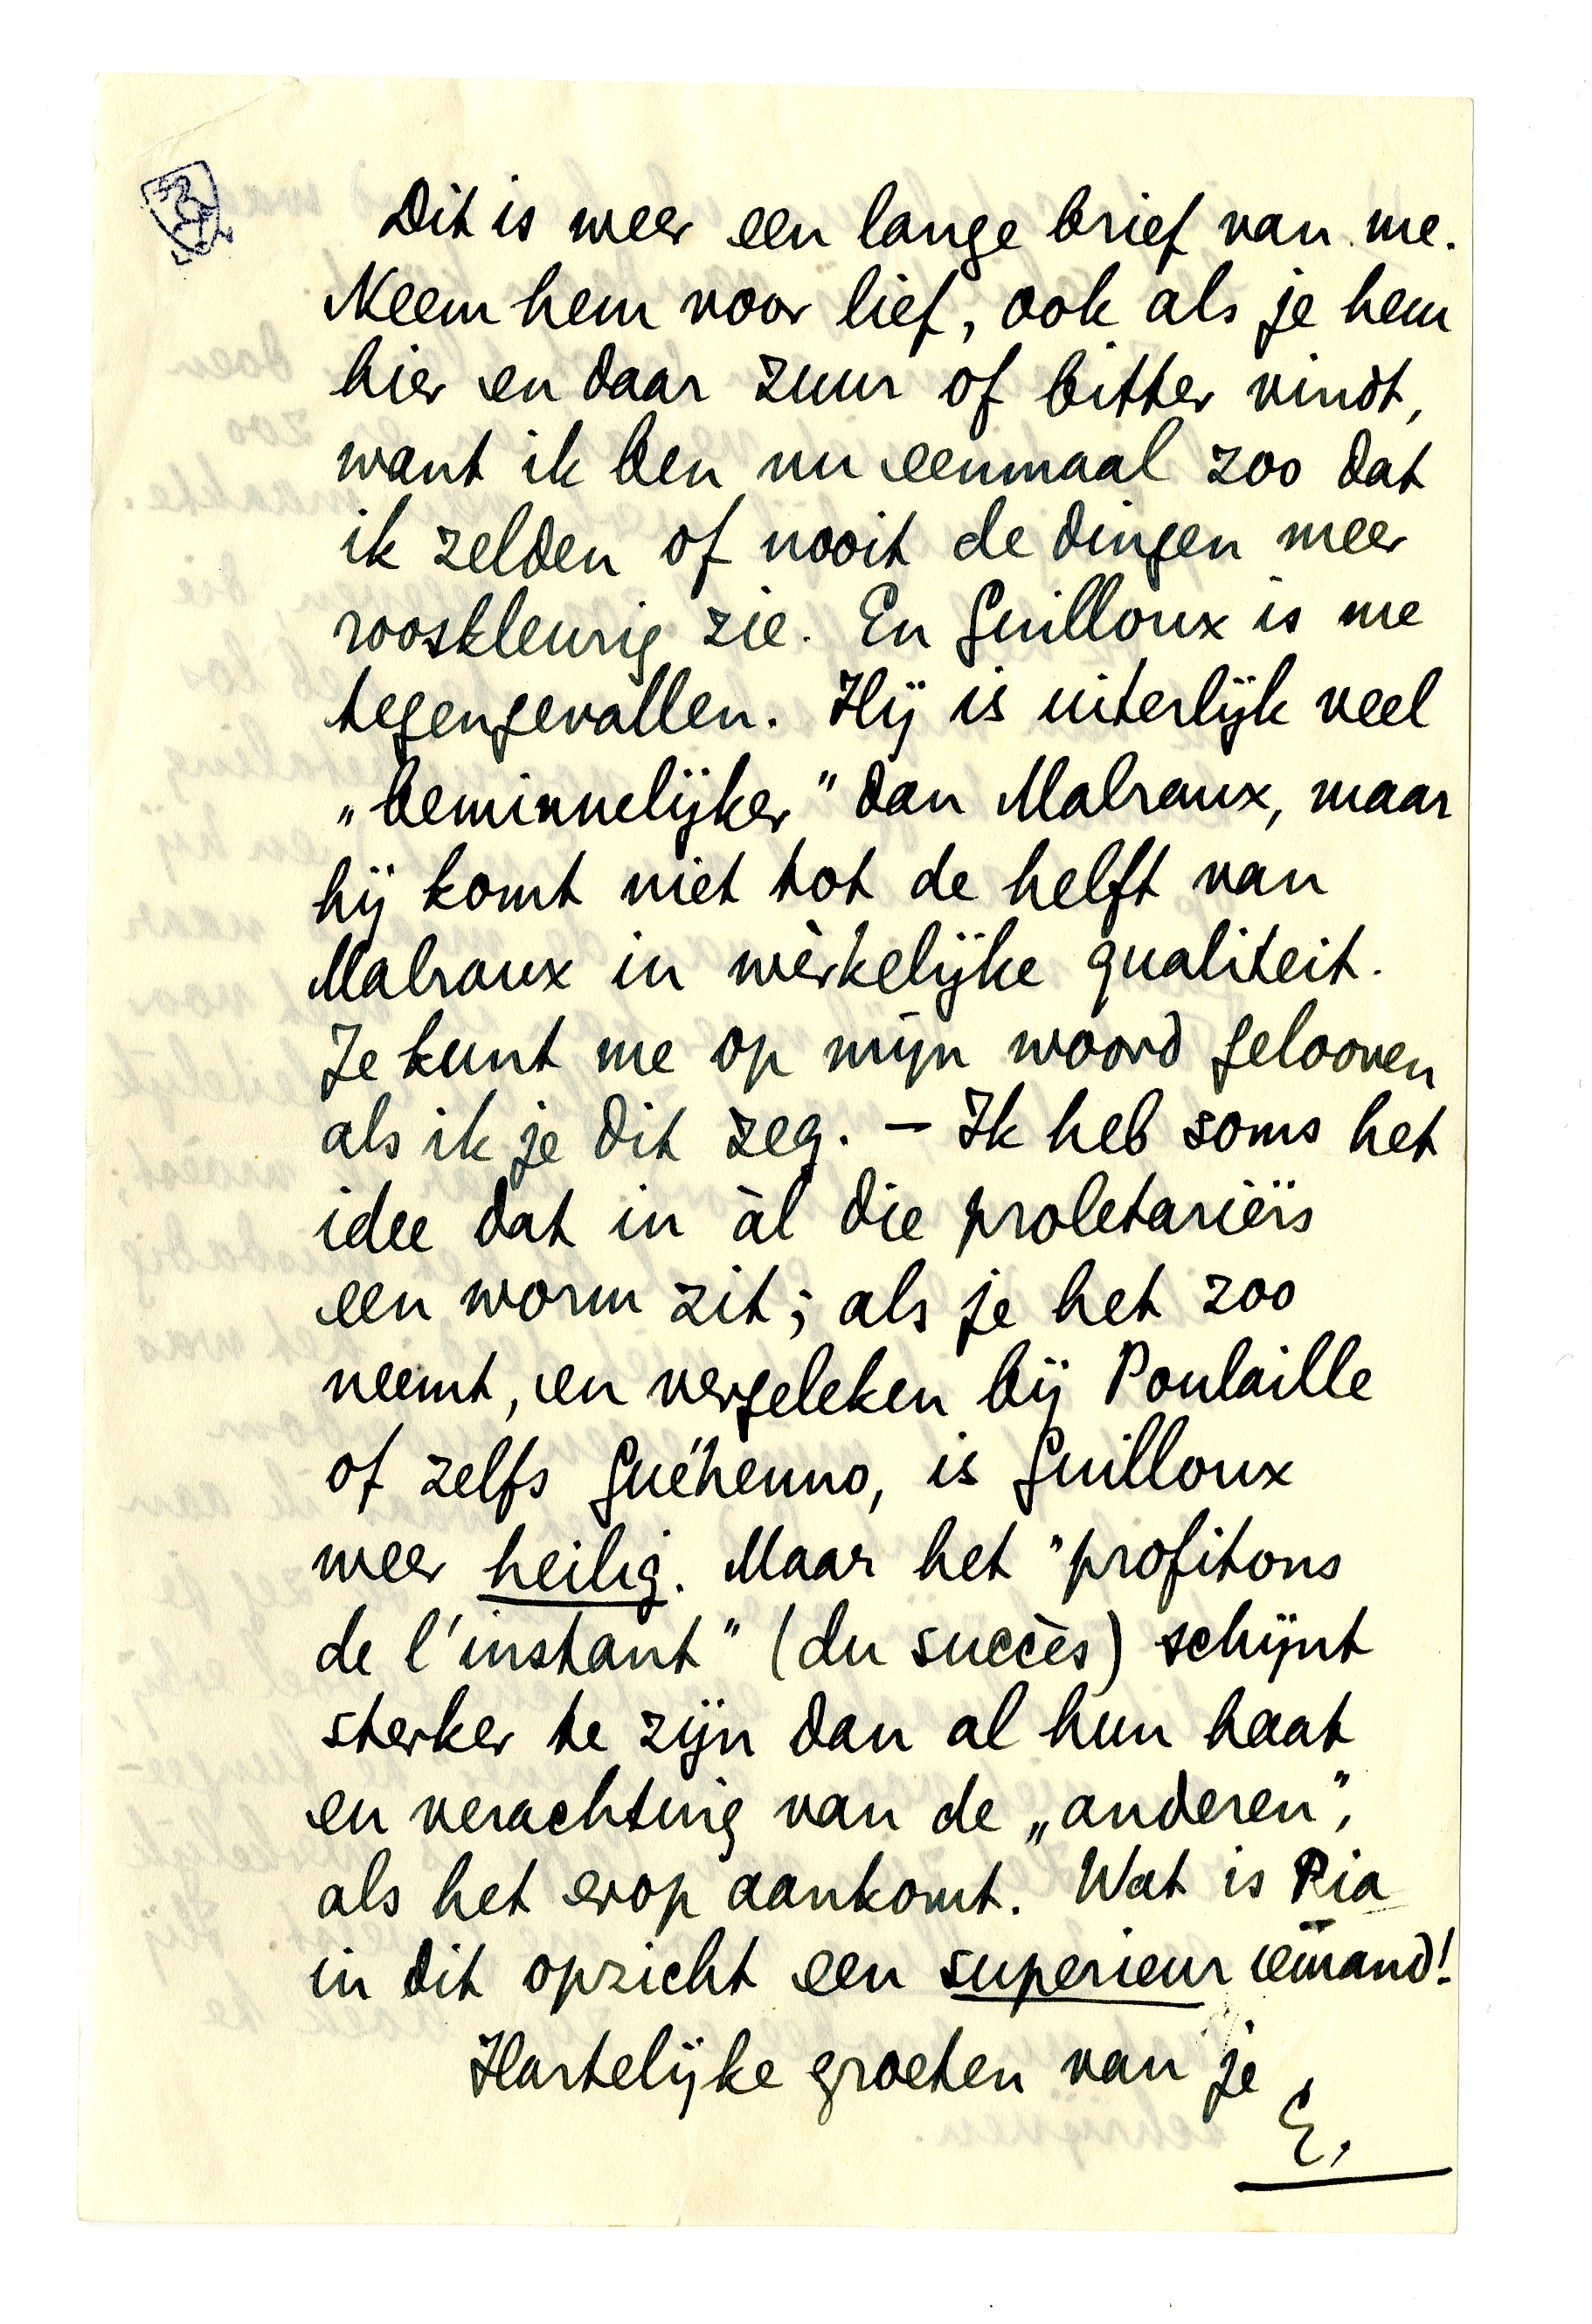 Dit is weer een lange brief van me.
Neem hem voor lief, ook als je hem
hier en daar zuur of bitter vindt,
want ik ben nu eenmaal zoo dat
ik zelden of nooit de dingen meer
rooskleurig zie. En Guilloux is me
tegengevallen. Hij is uiterlijk veel
„beminnelijker” dan Malraux, maar
hij komt niet tot de helft van
Malraux in wèrkelijke qualiteit.
Je kunt me op mijn woord gelooven
als ik je dit zeg. — Ik heb soms het
idee dat in àl die proletariërs
een worm zit; als je het zoo
neemt, en vergeleken bij Poulaille
of zelfs Guéhenno, is Guilloux
weer heilig. Maar het "profitons
de l'instant" (du succès) schijnt
sterker te zijn dan al hun haat
en verachting van de „anderen”,
als het erop aankomt. Wat is Pia
in dit opzicht een superieur iemand!
Hartelijke groeten van je
E.